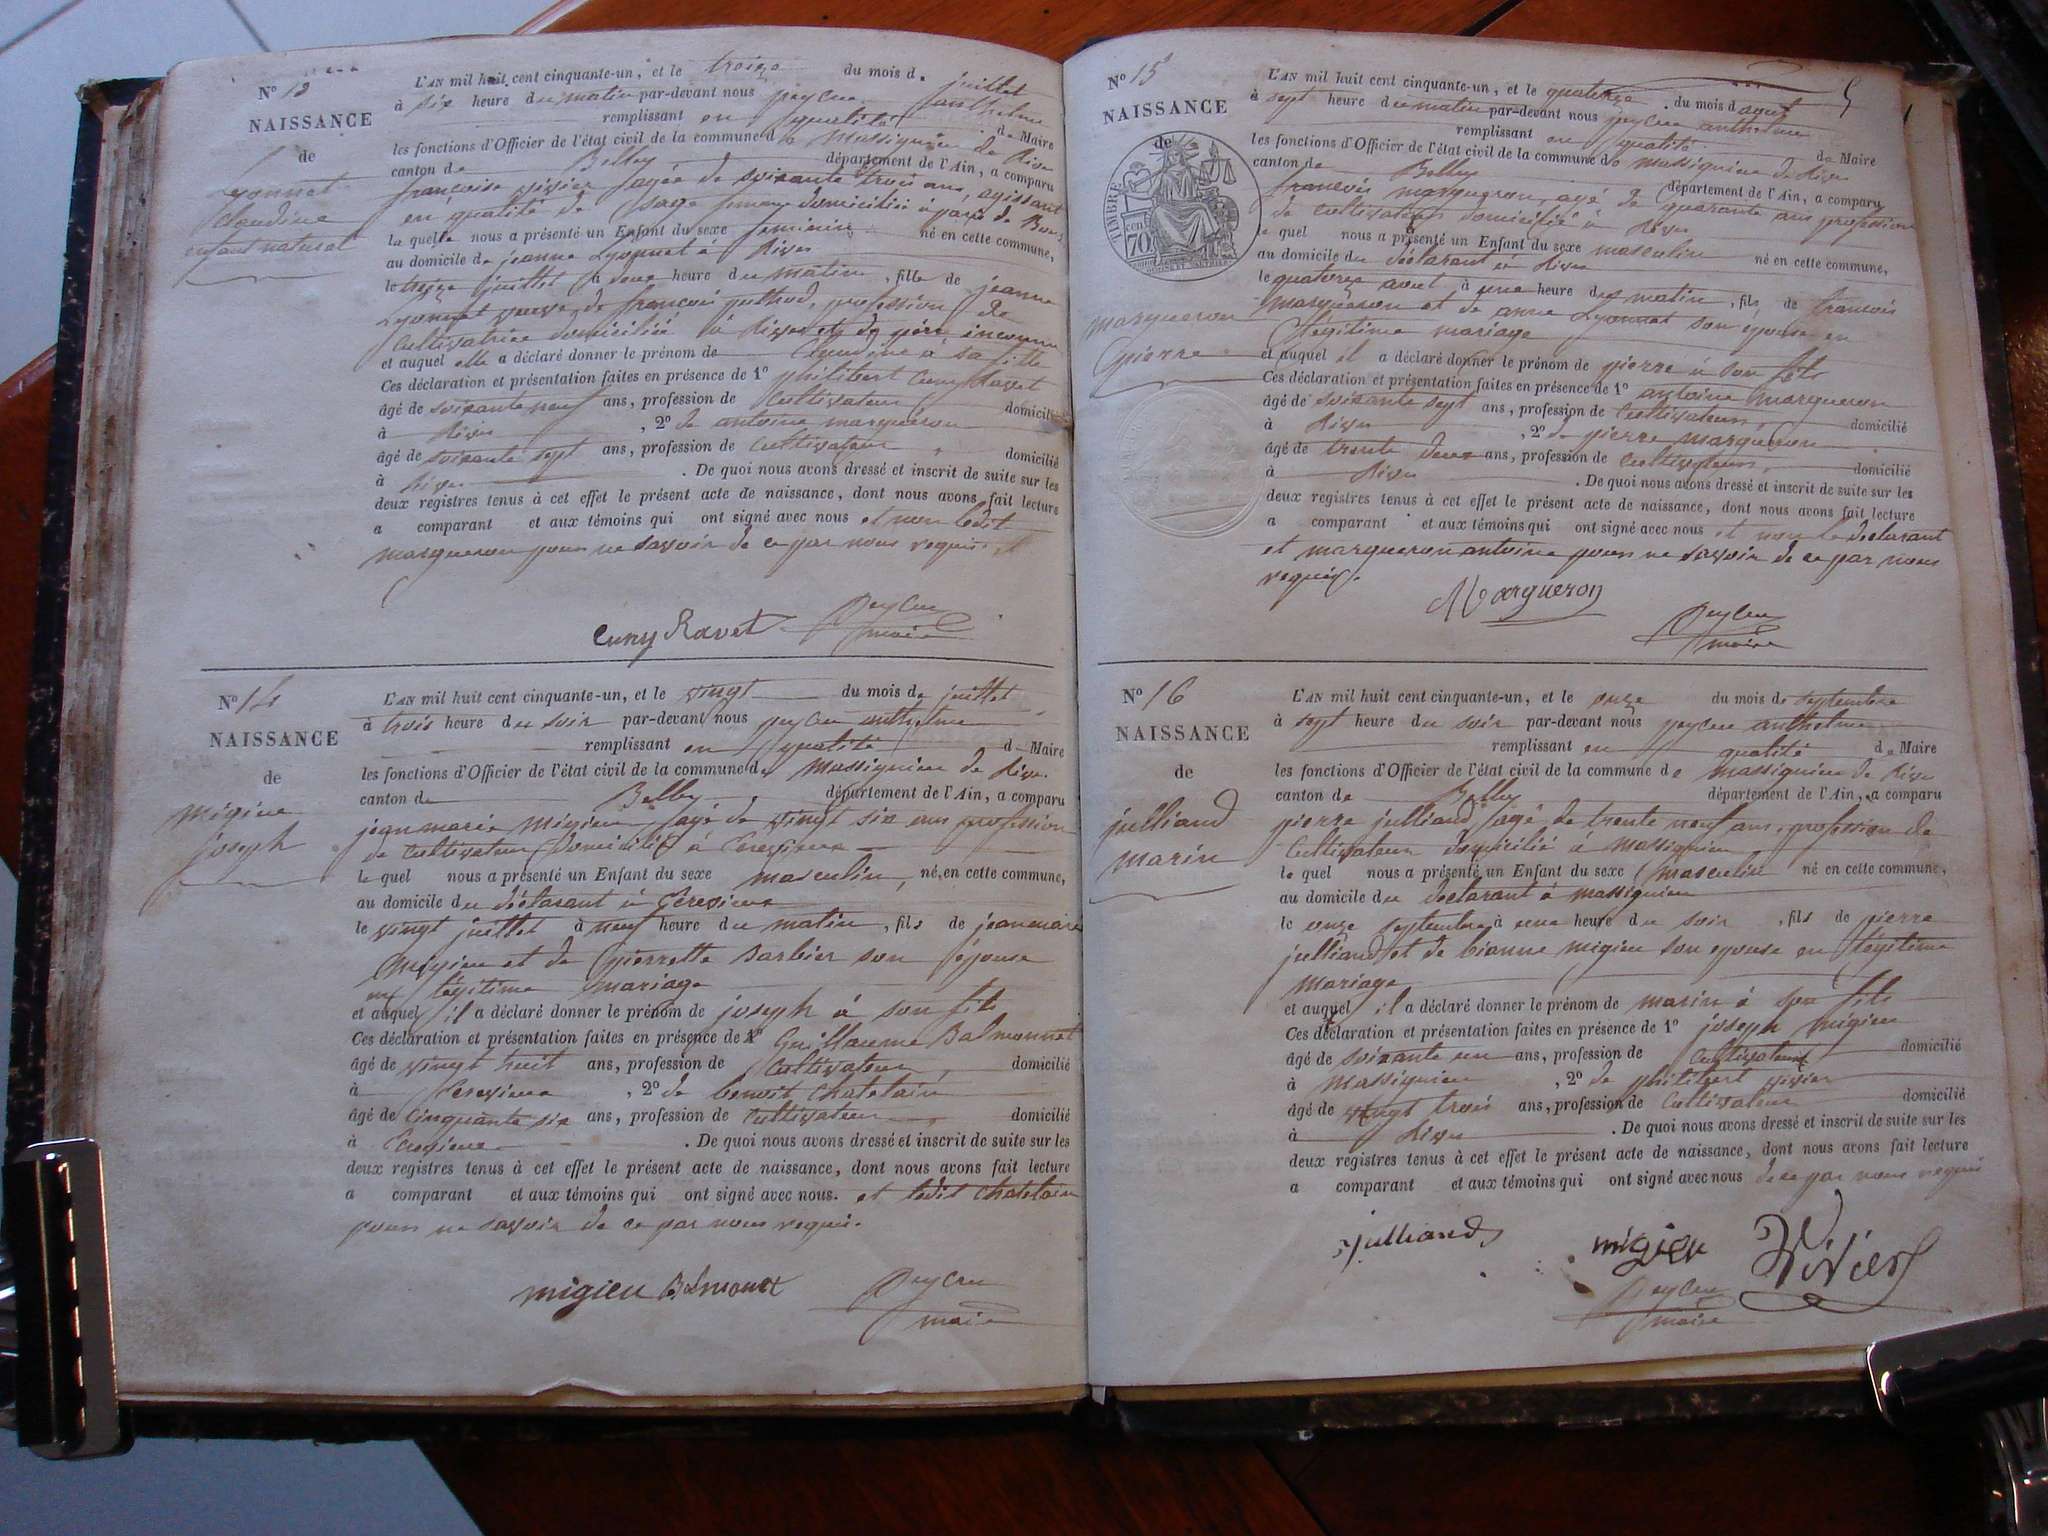 N° 13
NAISSANCE
de
Lyonnet
Claudine
enfant naturel
L'AN mil huit cent cinquante-un, et le treize du mois d. juillet
à six heure du matin par-devant nous peyleu anthelme
remplissant en qualité de Maire
les fonctions d'Officier de l'état civil de la commune de Massignieu de Rives
canton de Belley département de l'Ain, a comparu
françoise vivier agée de soixante trois ans, agissant
en qualité de sage femme domiciliée à
la quelle nous a présenté un Enfant du sexe feminin né en cette commune,
au domicile de jeanne Lyonnet à Rives
le treize juillet à deux heure du matin, fille de jeanne
Lyonnet veuve de françois guthod, profession de
Cultivatrice domiciliée à Rives et de père inconnu
et auquel elle a déclaré donner le prénom de Claudine à sa fille
Ces déclaration et présentation faites en présence de 1° philibert Cuny Ravet
âgé de soixante neuf ans, profession de Cultivateur domicilié
à Rives, 2° de antoine margueron
âgé de soixante sept ans, profession de Cultivateur, domicilié
à Rives. De quoi nous avons dressé et inscrit de suite sur les
deux registres tenus à cet effet le présent acte de naissance, dont nous avons fait lecture
a comparant et aux témoins qui ont signé avec nous et non ledit
margueron pour ne savoir de ce par nous requis.
Cuny Ravet Peyleu
maire
N° 14
NAISSANCE
de
migieu
joseph
L'AN mil huit cent cinquante-un, et le vingt du mois de juillet
à trois heure du soir par-devant nous peyleu anthelme
remplissant en qualité de Maire
les fonctions d'Officier de l'état civil de la commune de Massignieu de Rives
canton de Belley département de l'Ain, a comparu
jean marie Migieu, agé de vingt six ans profession
de Cultivateur domicilié à Cresieux
le quel nous a présenté un Enfant du sexe masculin, né en cette commune,
au domicile du déclarant à
le vingt juillet à neuf heure du matin, fils de jeanmarie
Migieu et de pierrette Barbier son épouse
en légitime mariage
et auquel il a déclaré donner le prénom de joseph à son fils
Ces déclaration et présentation faites en présence de 1° Guillaume Balmonnet
âgé de vingt huit ans, profession de Cultivateur, domicilié
à , 2° de benoit Chatelain
âgé de Cinquante six ans, profession de Cultivateur, domicilié
à . De quoi nous avons dressé et inscrit de suite sur les
deux registres tenus à cet effet le présent acte de naissance, dont nous avons fait lecture
a comparant et aux témoins qui ont signé avec nous. et ledit Chatelain
pour ne savoir de ce par nous requis.
migieu Balmonet Peyleu
maire
N° 15
5
NAISSANCE
de
TIMBRE
70
margueron
pierre
L'AN mil huit cent cinquante-un, et le quatorze du mois d aout
à sept heure du matin par-devant nous peyleu anthelme
remplissant en qualité de Maire
les fonctions d'Officier de l'état civil de la commune de Massignieu de Rives
canton de Belley département de l'Ain, a comparu
françois margueron, agé de quarante ans profession
de Cultivateur domicilié à Rives
le quel nous a présenté un Enfant du sexe masculin né en cette commune,
au domicile du déclarant à Rives
le quatorze aout à une heure du matin, fils de francois
margueron et de anne Lyonnet son épouse en
légitime mariage
et auquel il a déclaré donner le prénom de pierre à son fils
Ces déclaration et présentation faites en présence de 1° antoine margueron
âgé de soixante sept ans, profession de Cultivateur, domicilié
à Rives, 2° de pierre margueron
âgé de trente deux ans, profession de Cultivateur, domicilié
à Rives. De quoi nous avons dressé et inscrit de suite sur les
deux registres tenus à cet effet le présent acte de naissance, dont nous avons fait lecture
a comparant et aux témoins qui ont signé avec nous et non le declarant
et margueron antoine pour ne savoir de ce par nous
requis.
Margueron
Peyleu
maire
N° 16
NAISSANCE
de
julliand
marin
L'AN mil huit cent cinquante-un, et le onze du mois de septembre
à sept heure du soir par-devant nous peyleu anthelme
remplissant en qualité de Maire
les fonctions d'Officier de l'état civil de la commune de Massignieu de Rives
canton de Belley département de l'Ain, a comparu
pierre julliand agé de trente neuf ans, profession de
Cultivateur domicilié à massignieu
le quel nous a présenté un Enfant du sexe masculin né en cette commune,
au domicile du declarant à massignieu
le onze septembre à une heure du soir, fils de pierre
julliand et de migieu son epouse en légitime
mariage
et auquel il a déclaré donner le prénom de marin à son fils
Ces déclaration et présentation faites en présence de 1° joseph migieu
âgé de soixante un ans, profession de Cultivateur domicilié
à Massignieu, 2° de philibert vivier
âgé de vingt trois ans, profession de Cultivateur domicilié
à Rives. De quoi nous avons dressé et inscrit de suite sur les
deux registres tenus à cet effet le présent acte de naissance, dont nous avons fait lecture
a comparant et aux témoins qui ont signé avec nous de ce par nous requis
Julliand migieu Vivier
Peyleu
maire